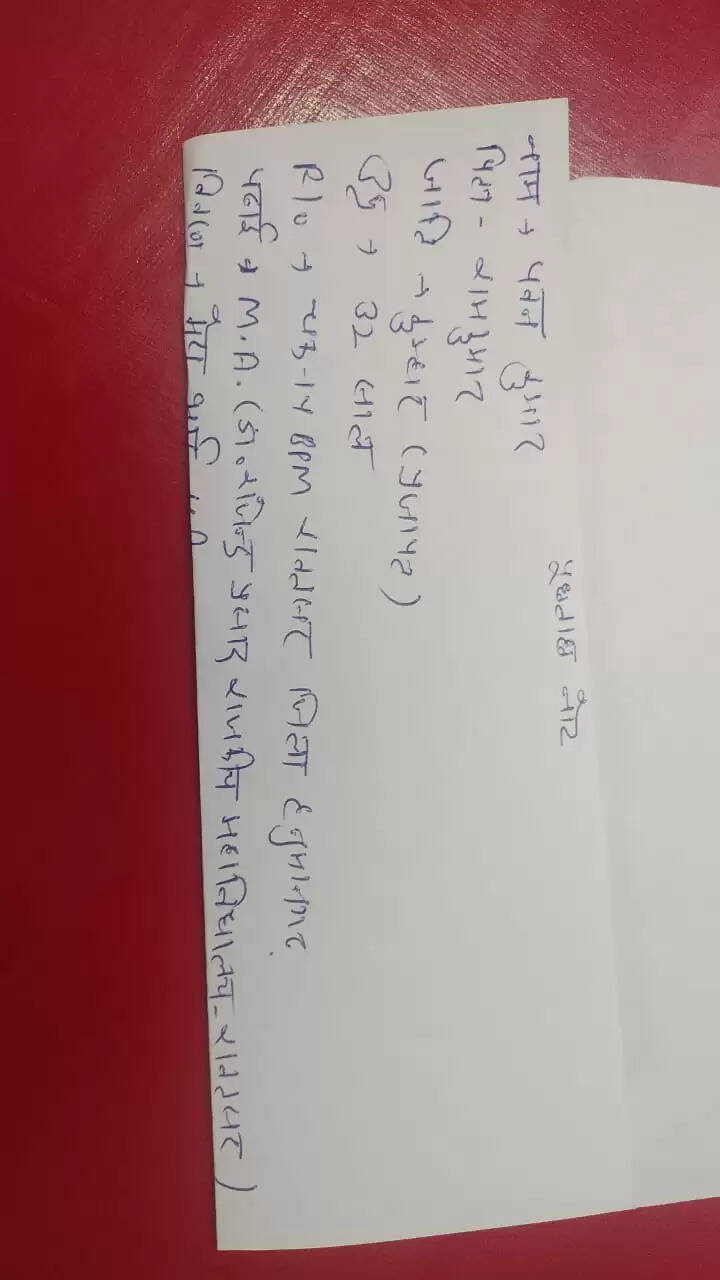 पूछताछ नोट
नाम → पवन कुमार
पिता - रामकुमार
जाति → कुम्हार (प्रजापत)
उम्र → 32 साल
R/o → चक-14 BPM रावतसर जिला हनुमानगढ़
पढाई → M.A. (डा. राजेन्द्र प्रसाद राजकीय महाविद्यालय-रावतसर)